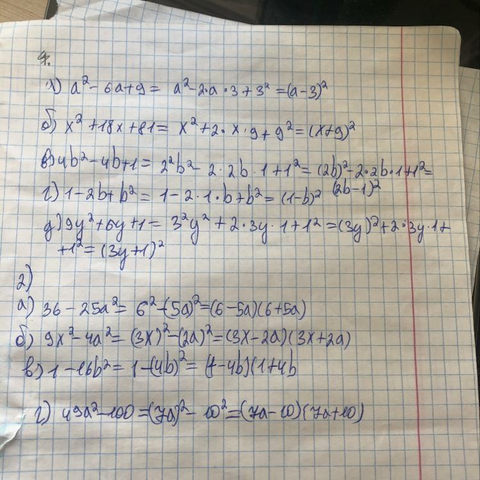 1.
а) a² - 6a+9 = a² - 2·a·3+3² = (a-3)²
б) x² + 18x + 81 = x² + 2·x·9 + 9² = (x+9)²
в) 4b² - 4b+1 = 2²b² - 2·2b·1+1² = (2b)² - 2·2b·1+1² =
(2b-1)²
г) 1-2b+b² = 1-2·1·b+b² = (1-b)²
д) 9y² + 6y + 1 = 3²y² + 2·3y·1+1² = (3y)² + 2·3y·1+
+1² = (3y+1)²
2)
а) 36 - 25a² = 6² - (5a)² = (6-5a)(6+5a)
б) 9x² - 4a² = (3x)² - (2a)² = (3x-2a)(3x+2a)
в) 1 - 16b² = 1 - (4b)² = (1-4b)(1+4b
г) 49a² - 100 = (7a)² - 10² = (7a-10)(7a+10)